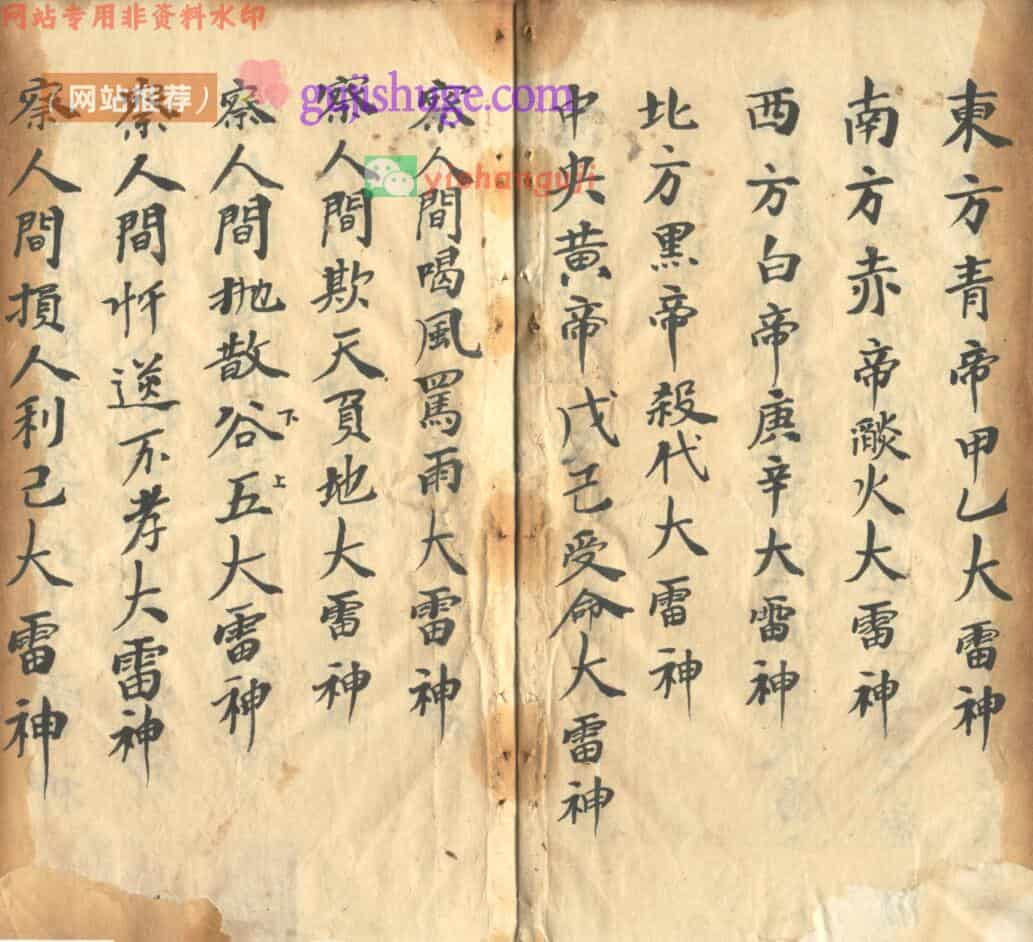 网站专用非资料水印
(网站推荐)
gujishuge.com
yishanguji
東方青帝甲乙大雷神
南方赤帝燄火大雷神
西方白帝庚辛大雷神
北方黑帝殺伐大雷神
中央黃帝戊己受命大雷神
察人間喝風罵雨大雷神
察人間欺天負地大雷神
察人間抛散谷下五上大雷神
察人間忤逆不孝大雷神
察人間損人利己大雷神